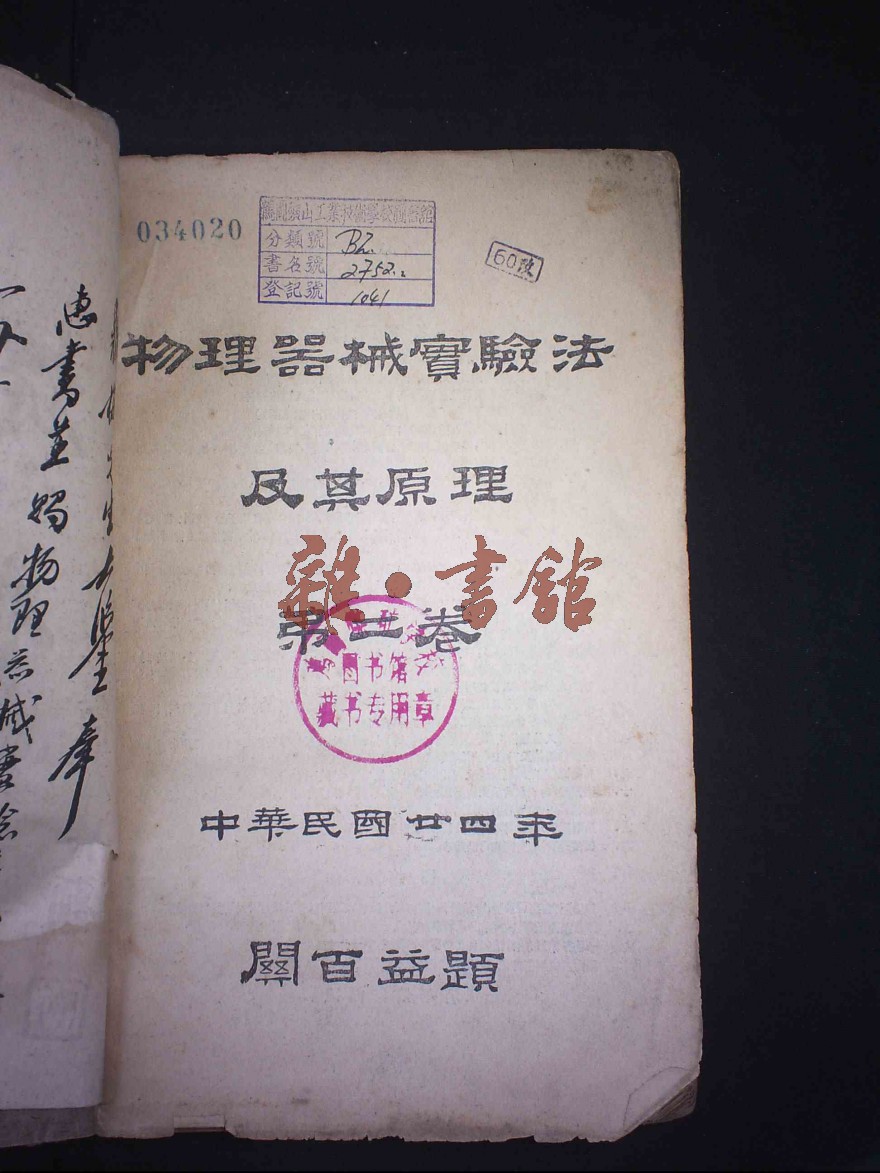 034020
分類號 BZ.
書名號 2752.2
登記號 1041
60陳
物理器械實驗法
及其原理
雜·書館
第二卷
图书馆
藏书专用章
中華民國廿四年
關百益題
惠書並
物理器械書
奉